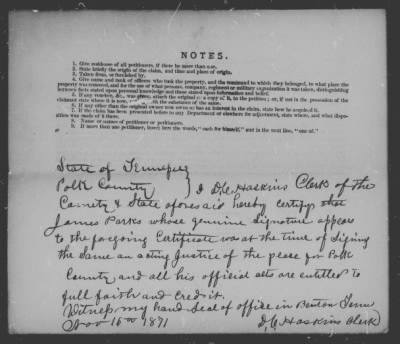 NOTES.
1. Give residence of all petitioners, if there be more than one.
2. State briefly the origin of the claim, and time and place of origin.
3. Taken from, or furnished by.
4. Give name and rank of officers who took the property, and the command to which they belonged, to what place the
property was removed, and for the use of what persons, company, regiment or military organization it was taken, distinguishing
between facts stated upon personal knowledge and those stated upon information and belief.
5. If any voucher, &c., was given, attach the original or a copy of it, to the petition; or, if not in the possession of the
claimant state where it is now, with the substance of the same.
6. If any other than the original owner now owns or has an interest in the claim, state how he acquired it.
7. If the claim has been presented before to any Department or elsewhere for adjustment, state where, and what dispo-
sition was made of it there.
8. Name or names of petitioner or petitioners.
9. If more than one petitioner, insert here the words, "each for himself," and in the next line, "one of."
State of Tennessee
Polk County } I D.C. Haskins Clerk of the
County & State aforesaid hereby certify that
James Parks whose genuine Signature appears
to the foregoing Certificate was at the time of Signing
the Same an acting Justice of the peace for Polk
County and all his official acts are entitled to
full faith and credit.
Witness my hand & Seal of office in Benton Tenn
Nov 16th 1871 D,C, Haskins Clerk